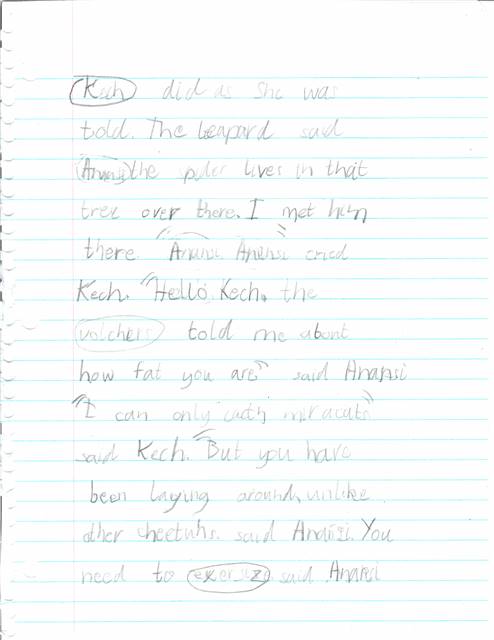 Kech did as she was
told. The Leapard said
Anansi the spider lives in that
tree over there. I met him
there. "Anansi Anansi" cried
Kech. "Hello Kech, the
volchers told me about
how fat you are" said Anansi
"I can only catch miracats"
said Kech. "But you have
been laying around, unlike
other cheetuhs. said Anansi. You
need to exersize said Anansi